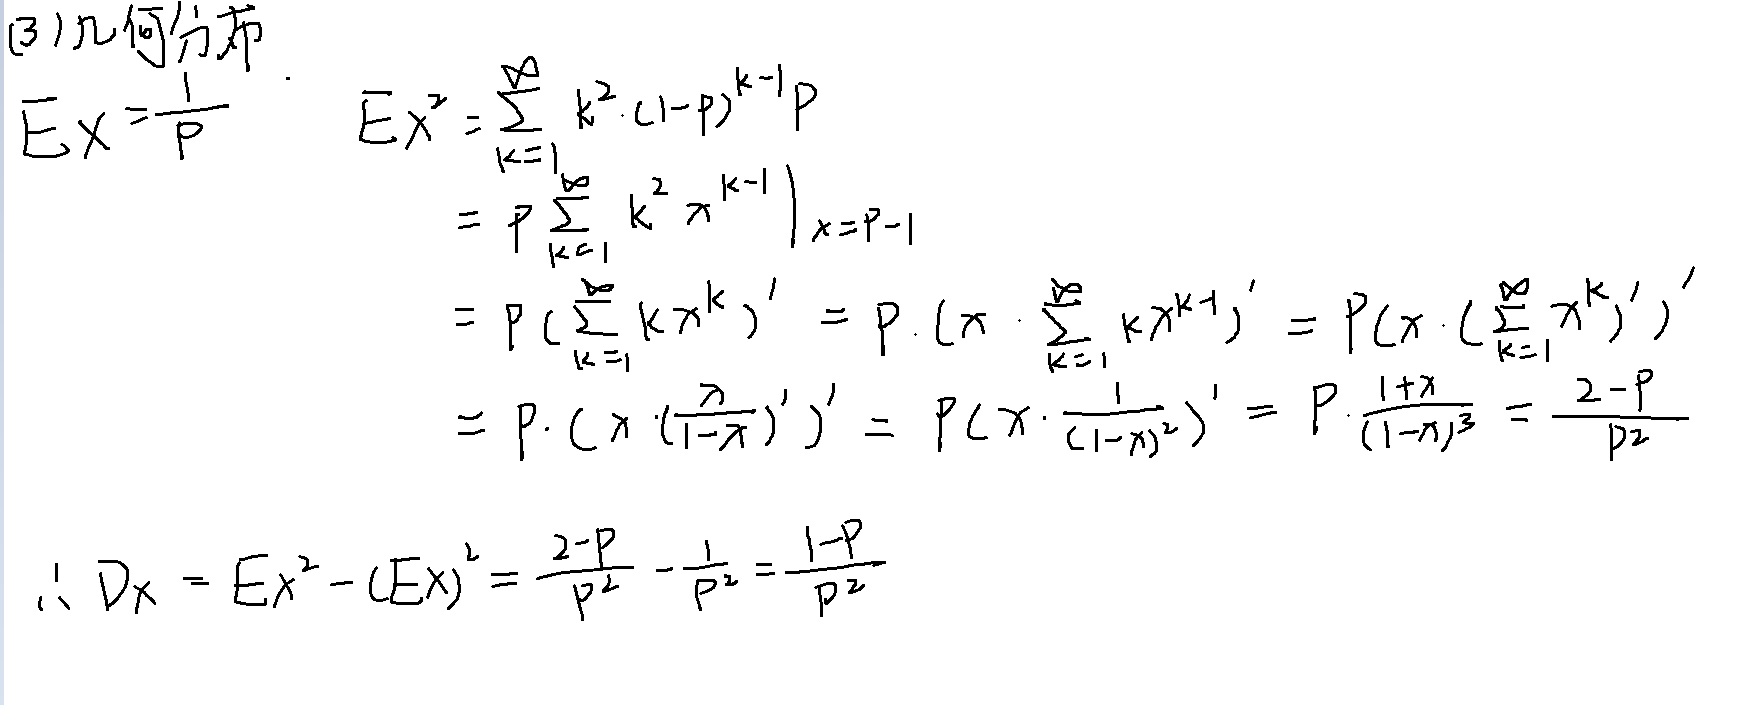 (3)几何分布
Ex = 1/p . Ex² = ∑_{k=1}^{∞} k²·(1-p)^{k-1} p
= p ∑_{k=1}^{∞} k² x^{k-1} |_{x=p-1}
= p(∑_{k=1}^{∞} kx^k)' = p·(x·∑_{k=1}^{∞} kx^{k-1})' = p(x·(∑_{k=1}^{∞} x^k)')'
= p·(x·(x/(1-x))')' = p(x·1/(1-x)²)' = p·(1+x)/(1-x)³ = (2-p)/p²
∴ Dx = Ex² - (Ex)² = (2-p)/p² - 1/p² = (1-p)/p²